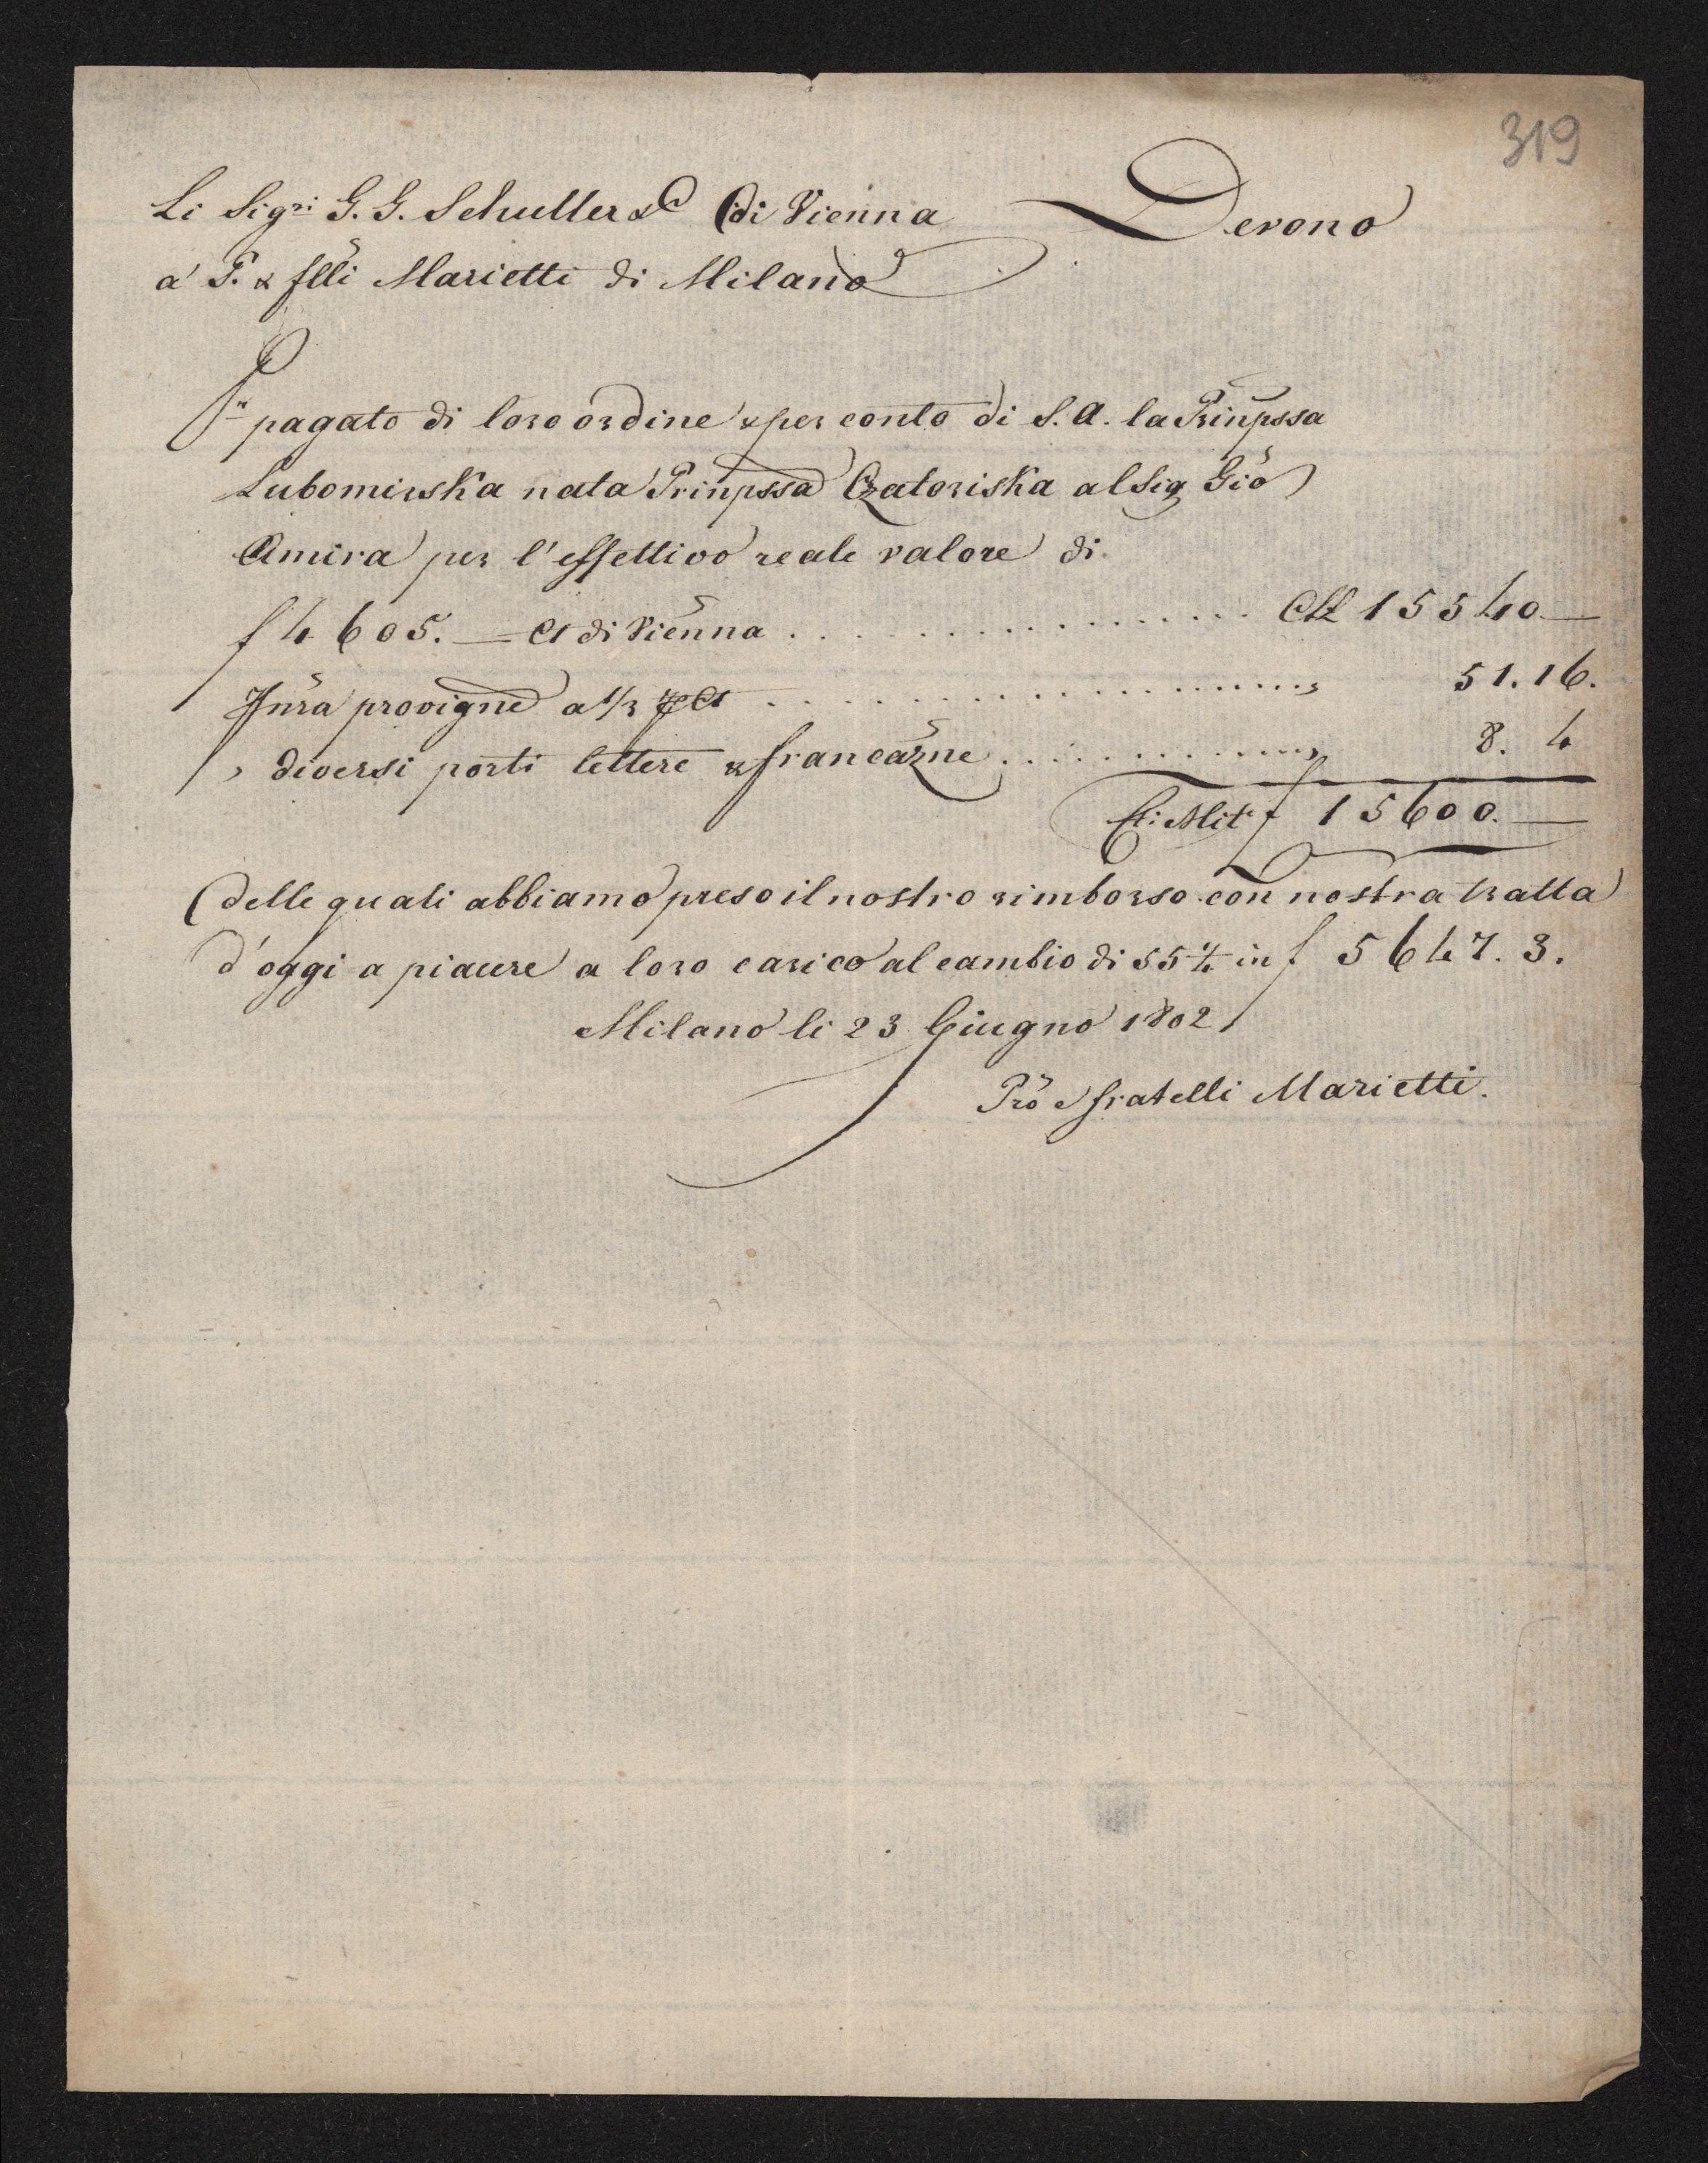 319
Li Sig.ri G. G. Schuller & C di Vienna Devono
a P. & flli Marietti di Milano
P pagato di loro ordine & per conto di S. A. la Prinpssa
Lubomirska nata Prinpssa Czatoriska al Sig Gio
Amira per l'effettivo reale valore di
f 4605. — Ct di Vienna . . . . . . . . . . 15540. —
Nñra provigne a 1/3 p Ct . . . . . . . . . . „ 51. 16.
„ diversi porti lettere & francazne . . . . . . . . . . „ 8. 4
Cti: Mil f 15600. —
delle quali abbiamo preso il nostro rimborso con nostra tratta
d'oggi a piacere a loro carico al cambio di 55 1/4 in f 5647. 3.
Milano li 23 Giugno 1802
Pio e fratelli Marietti.